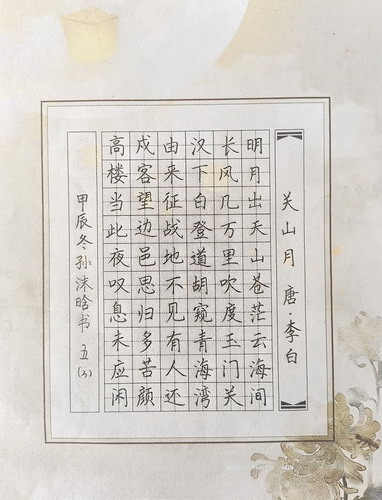 关山月 唐·李白
明月出天山苍茫云海间
长风几万里吹度玉门关
汉下白登道胡窥青海湾
由来征战地不见有人还
戍客望边邑思归多苦颜
高楼当此夜叹息未应闲
甲辰冬孙沫晗书 五(3)